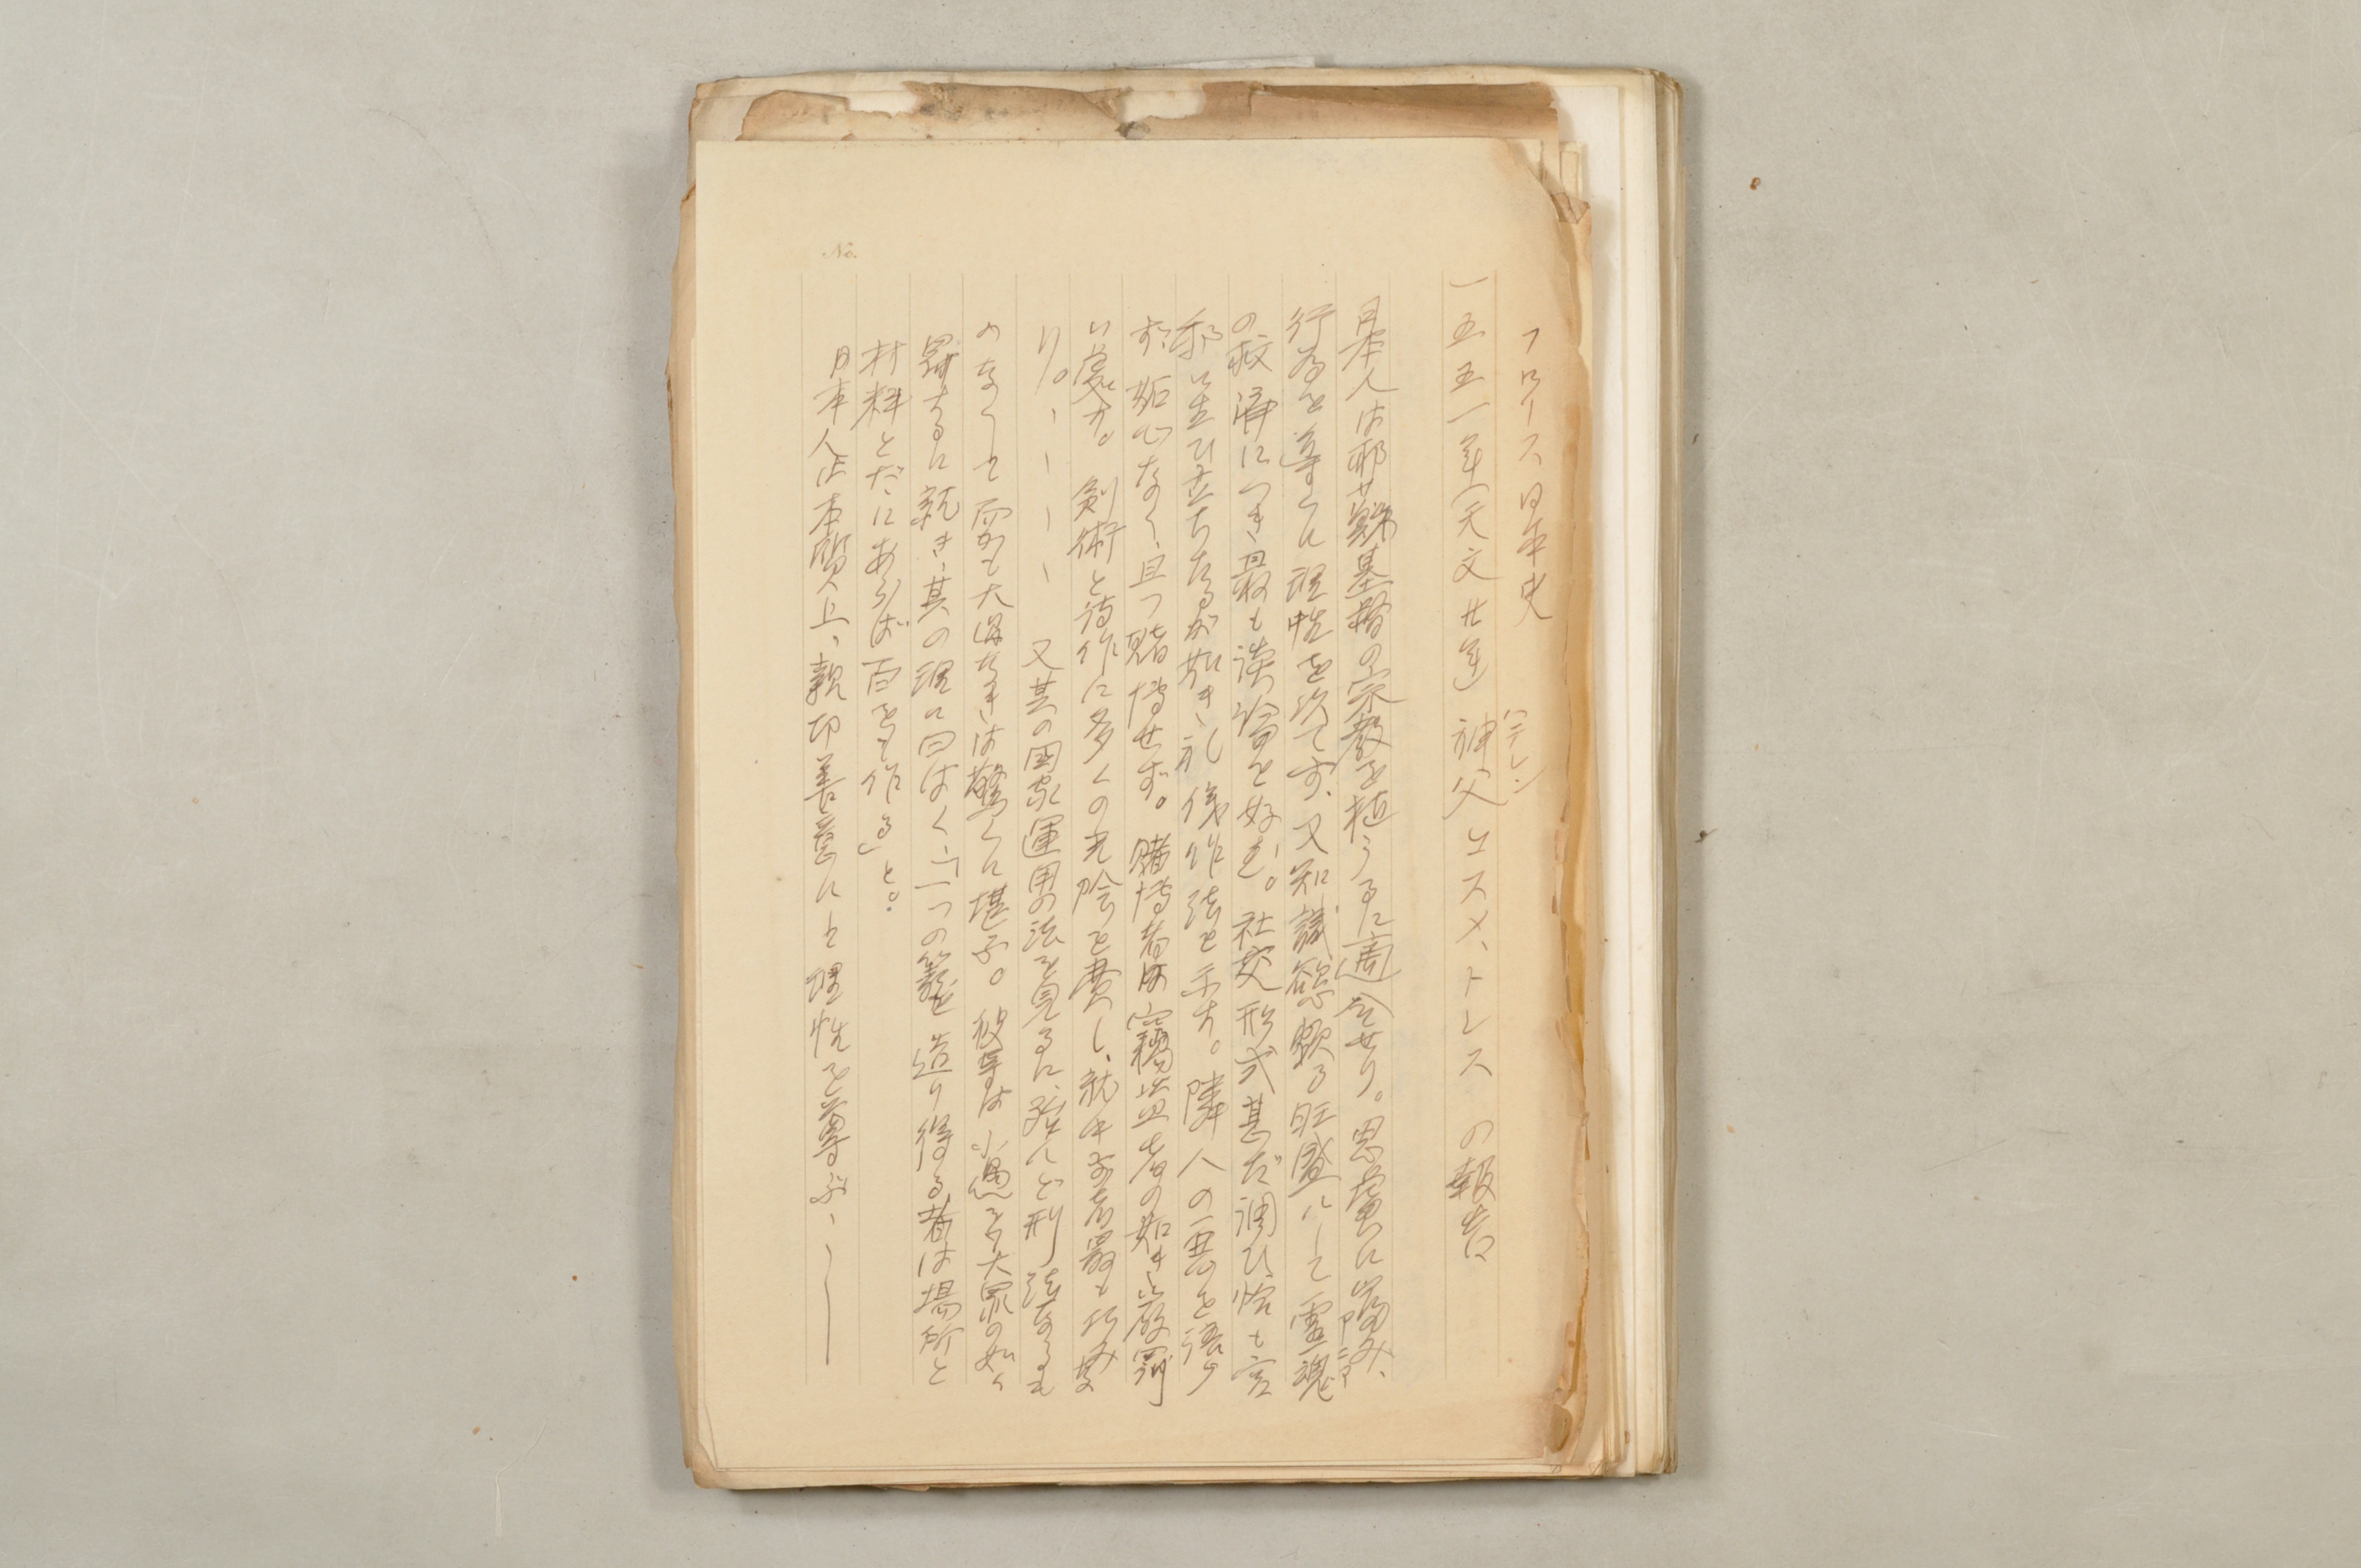 フロイス日本史
一五五一年(天文廿年) 神父コスメ、トレスの報告
バテレン
日本人は耶蘇基督の宗教を植うるに適合せり。思慮に富み、
行為を導くに理性を以てす、又知識慾頗る旺盛にして霊魂
アニマ
の救済につき最も談論を好む。社交形式甚だ調ひ恰も宮
邸に生ひ立ちたるが如き礼儀作法を示す。隣人の悪を語ら
ず、妬心なく、且つ賭博せず。賭博者は窃盗者の如き厳罰
に處す。剣術と詩作に多くの光陰を費し、就中前者最も
り。、、、、、又其の国家運用の法を見るに、殆んど刑法なるも
のなくして而かも大過なきは驚くに堪ふ。彼等は小悪をも大罪の如く
罰するに就き、其の理に曰はく、「一つの籠を造り得る者は場所と
材料とだにあらば百をも作る」と。
日本人は本質上、親切善意にして理性を尊ぶ、——
No.